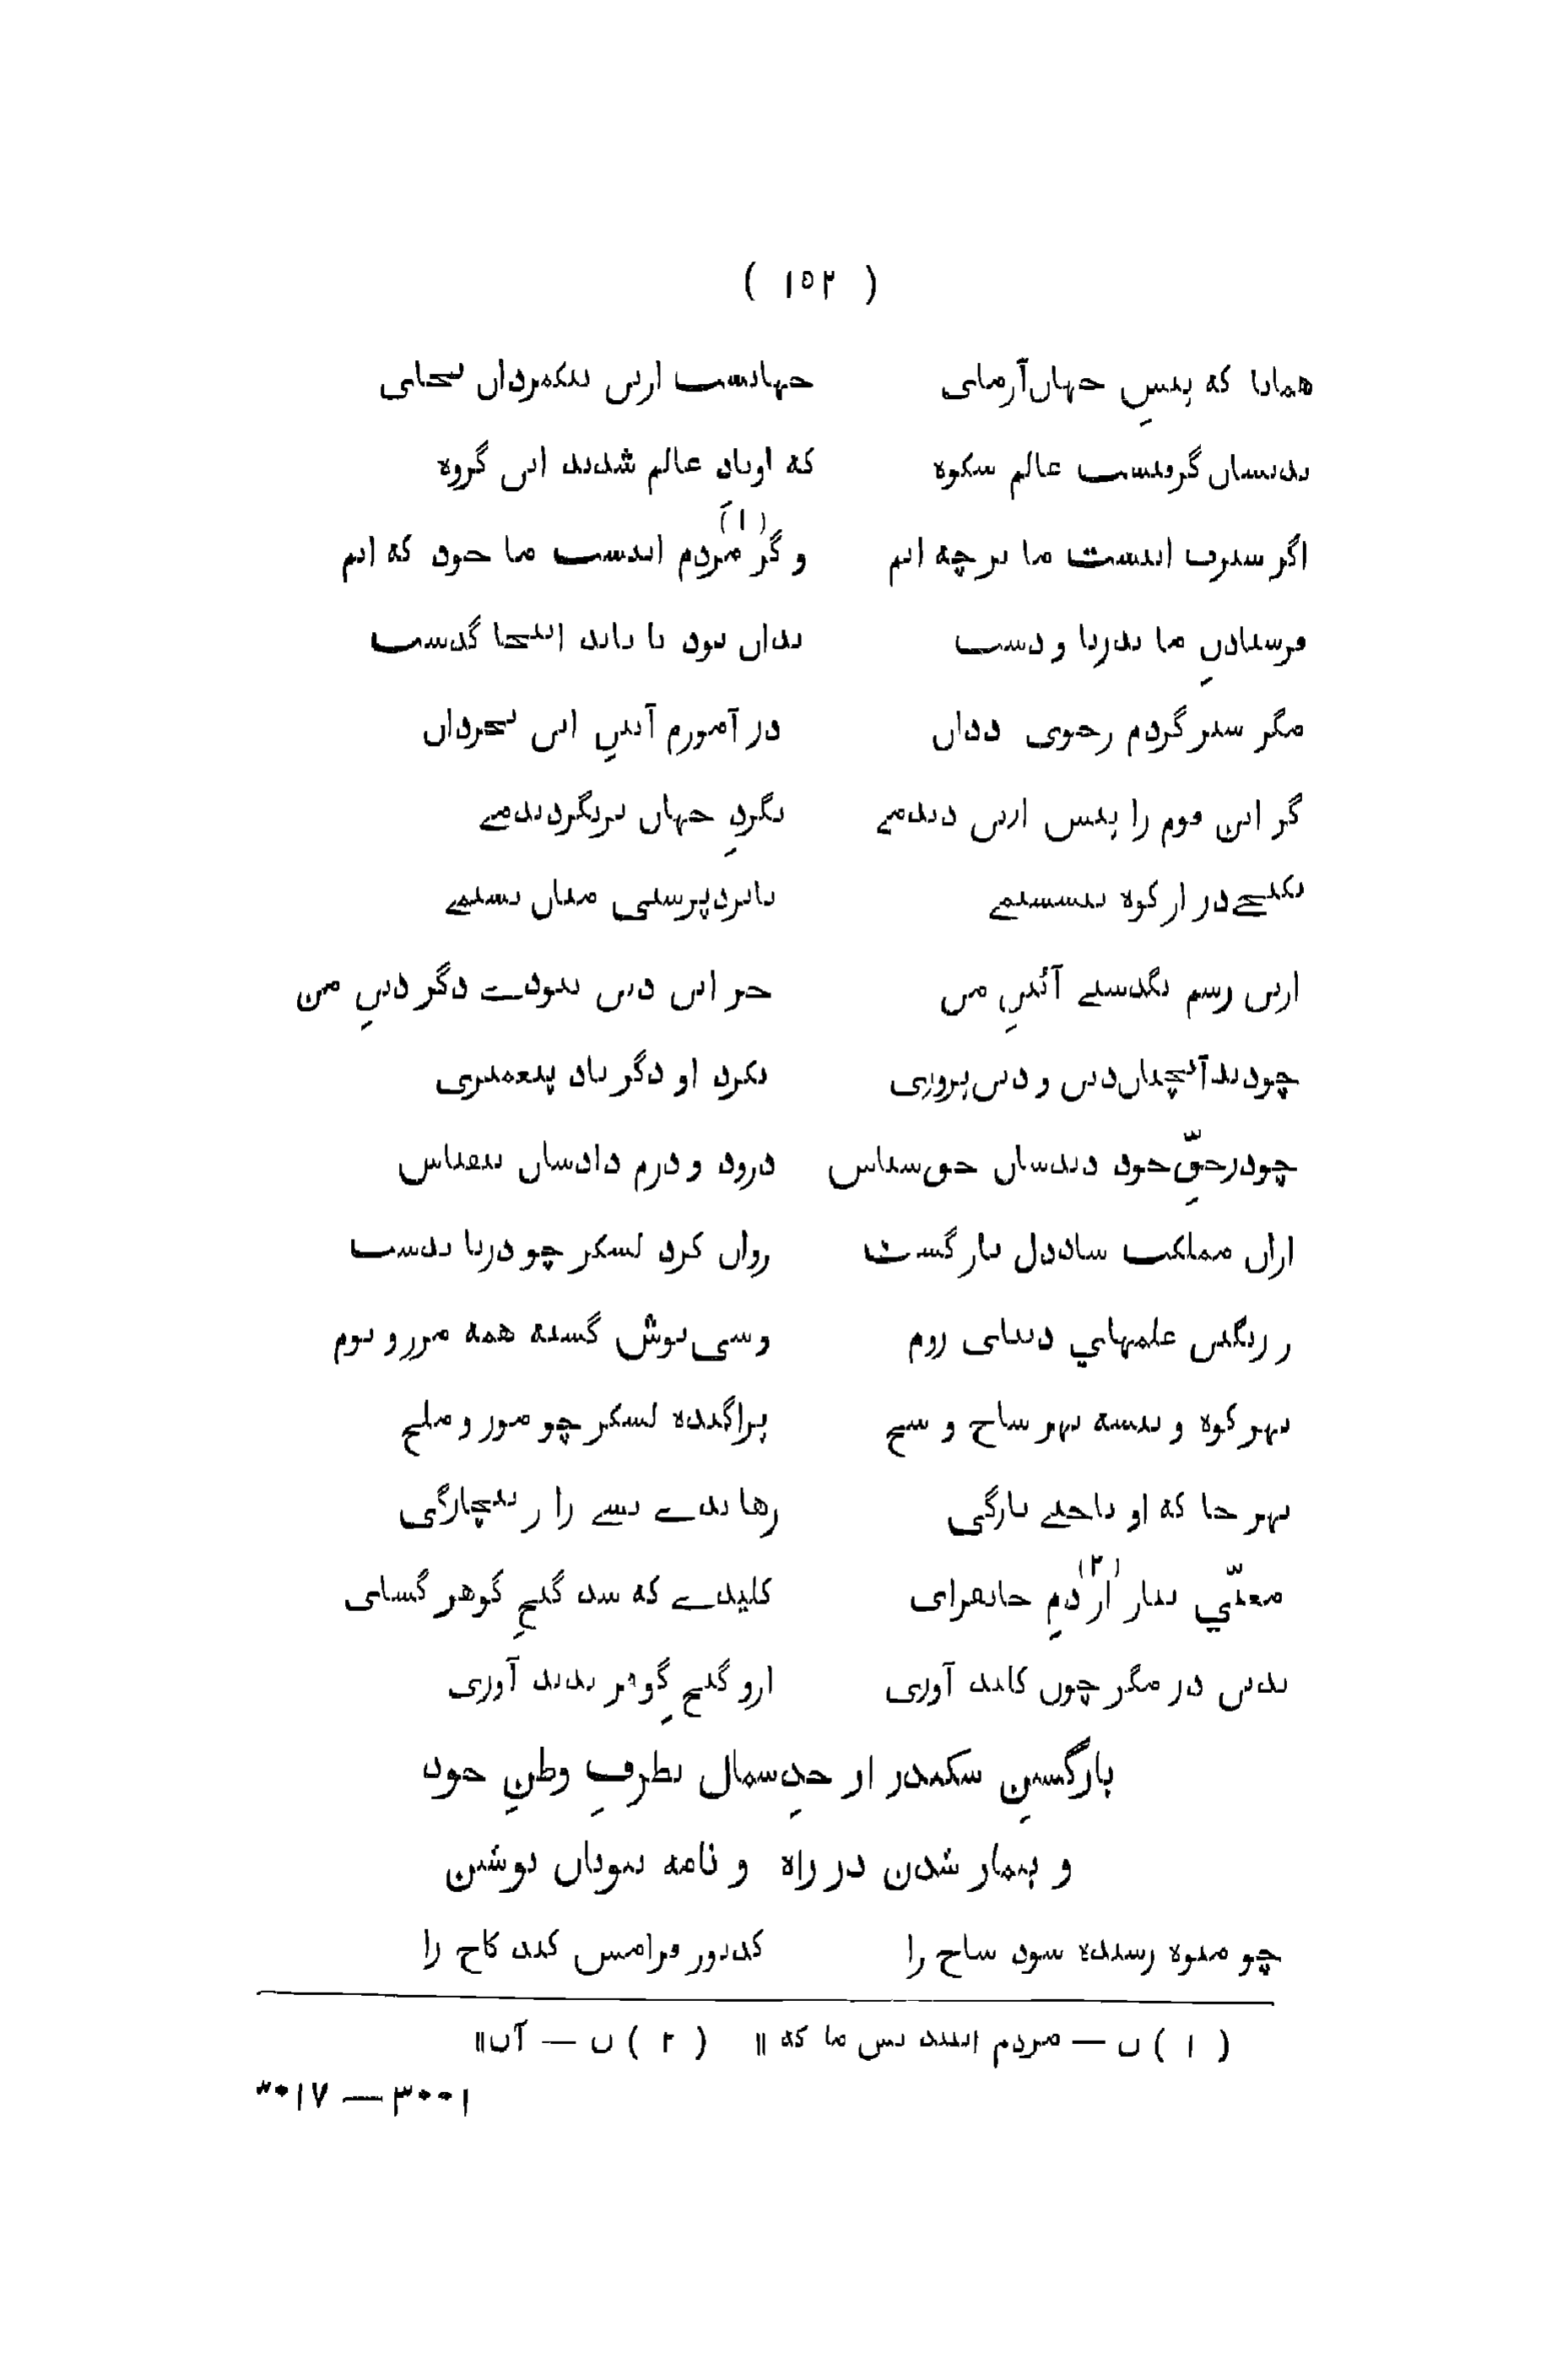 ( ۱۵۲ )
همانا که پیشِ جهان‌آزمای جهانست ازین نیکمردان بجای
بدیشان گرفتست عالم شکوه که اوتاد عالم شدند این گروه
اگر سیرت اینست ما بر چه ایم و گر (۱) مردم اینست ما خود که ایم
فرستادنِ ما بدریا و دشت بدان بود تا باید اینجا گذشت
مگر سیر گردم زخوی ددان در آموزم آئینِ این بخردان
گر این قوم را پیش ازین دیدمے بگردِ جهان برنگردیدمے
بکنجے در از کوه بنشستمے بایزدپرستی میان بستمے
ازین رسم نگذشتے آئینِ من جز این دین نبودے دگر دینِ من
چودید آنچنان دین و دین‌پروری نکرد او دگر یاد پیغمبری
چودرحقِّ خود دیدشان حق‌شناس درود و درم دادشان بیقیاس
ازان مملکت شاددل باز گشت روان کرد لشکر چو دریا بدشت
ز رنگین علمهای دیبای روم وشی‌پوش گشته همه مرز و بوم
بهر کوه و بیشه بهر شاخ و شخ پراگنده لشکر چو مور و ملخ
بهر جا که او تاختے بارگی رهاندے بسے را ز بیچارگی
مغنّی بیار از (۲) دمِ جانفزای کلیدے که شد گنجِ گوهر گشای
بدین در مگر چون کلید آوری ازو گنجِ گوهر پدید آوری
بازگشتنِ سکندر از حدِ شمال بطرفِ وطنِ خود
و بیمار شدن در راه و نامه سویان نوشتن
چو میوه رسیده شود شاخ را کدیور فرامش کند کاخ را
( ۱ ) ن — مردم اینند پس ما که ॥ ( ۲ ) ن — آن॥
۳۰۱۷ — ۳۰۰۱